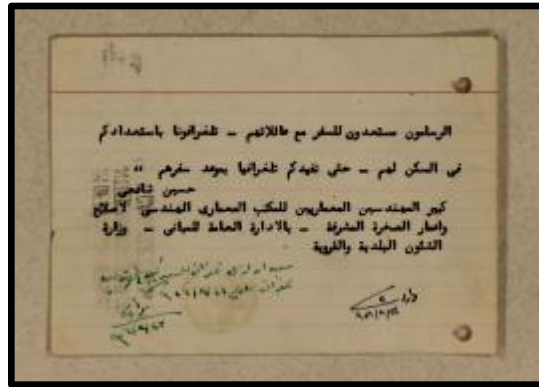 الرسامون مستعدون للسفر مع عائلاتهم – تلغرافونا باستعدادكم
فى السكن لهم – حتى نفيدكم تلغرافيا بموعد سفرهم ،،
حسين شافعى
كبير المهندسين المعماريين للمكتب المعمارى الهندسى لاصلاح
واعمار الصخرة المشرفة – بالادارة العامة للمبانى – وزارة
الشئون البلدية والقروية